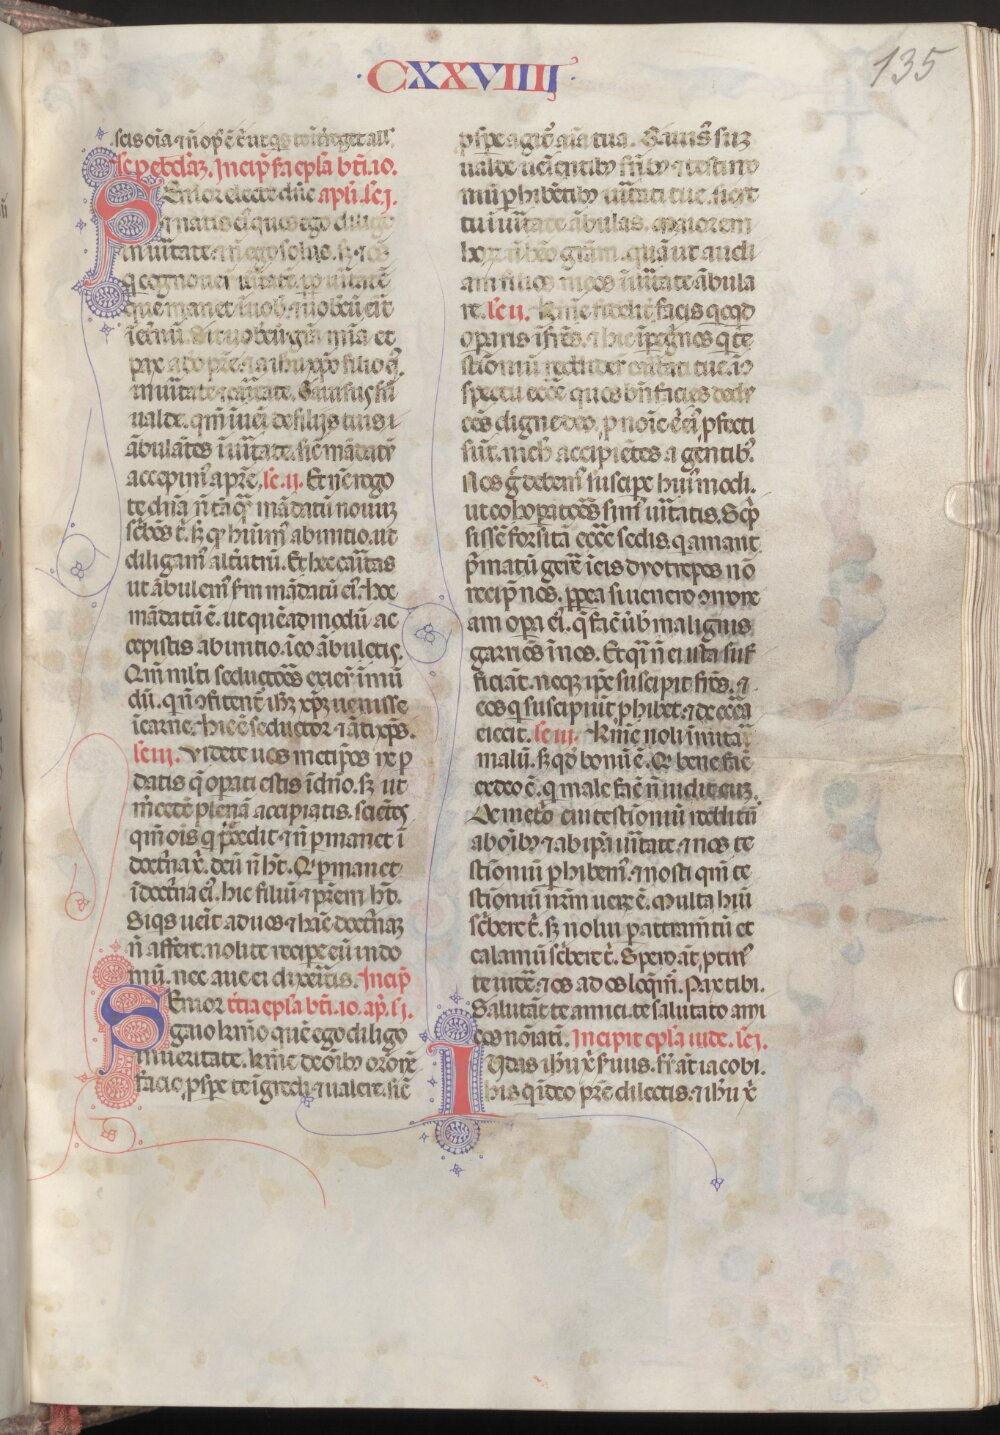 ·CXXVIIII·
135
scis oīa ⁊ n̄ op̄ ē ē ut
Incip̄ s̄a ep̄la btī. io.
Senior electe dn̄e apl̄i. lc̄ j.
⁊ natis ei' quos ego diligo
in uītate. ⁊ n̄ ego solus. sꝫ ⁊ oēs
q̄ cognouerūt uītatē. pp̄ uītatē
que manet ī nob̄. ⁊ nobcū erit
ī et̄nū. Sit uobcū gr̄a mīa et
pax a do pr̄e. ⁊ a ihu xp̄o filio
in uītate ⁊ caritate. Gauisus sū
ualde. qm̄ īueī de filijs tuis
ābulātes ī uītate. sic̄ mādatū
accepim' a pr̄e. lc̄. ij. Et nc̄ rogo
te dn̄a n̄ tāq̄ mādatū nouuꝫ
sc̄bēs t'. sꝫ qd̄ huim' ab initio. ut
diligam' altūtrū. Et hec caritas
ut ābulem' s̄m mādatū ei'. hoc
mādatū ē. ut quēadmodū ac
cepistis ab initio. ī eo ābuletis.
Qm̄ ml'ti seductōes exier̄ ī mū
dū. qui n̄ ofitent' ihꝫ xp̄ꝫ uenisse
ī carne. hic ē seductor ⁊ ātixp̄s.
lc̄ iij. Videte uos metip̄os ne p
datis q̄ opati estis ī dn̄o. sꝫ ut
m̄cedē plenā accipiatis. sciētes
qm̄ oīs q p̄cedit ⁊ n̄ pmanet ī
doct'na x̄. deū n̄ ht̄. Q' pmanet
ī doct'na ei'. hic filiū ⁊ pr̄em ht̄.
Siqs ueīt ad uos ⁊ hāc doct'naꝫ
n̄ affert. nolite recipe eū in do
mū. nec aue ei dixeritis. Incip̄
Senior t'tia ep̄la btī. io. ap̄. lc̄ j.
gaio kr̄mo quē ego diligo
in ueritate. kr̄me de oībꝰ orōnē
facio, pspe te īgredi ⁊ ualere. sic̄
pspe agit' aīa tua. Gauis' suꝫ
ualde uēientibꝰ fr̄ibꝰ ⁊ testimo
niū phibētibꝰ uītati tue. sicut
tu ī uītate ābulas. Maiorem
hoꝝ n̄ hēo gr̄am. quā ut audi
am filios meos ī uītate ābula
re. lc̄ ij. kr̄me fidelit' facis qcqd
oparis ī fr̄es. ⁊ hic ī pegnos q te
stīoniū reddider̄ caritati tue. ī
spectu eccl̄e quos bn̄ facies dedu
cēs digne deo. p noīe ē ei' pfecti
sūt. nich' accipiētes a gentib'.
Nos g' debem' suscipe hui'modi.
ut coopatores sim' uītatis. Scp̄
sissē forsitā eccl̄e sed is. q amant
p̄matū gerē ī eis dyotrepes nō
recip̄ nos. pp̄ea si uenero omone
am opa ei'. q̄ fac̄ ūb' malignis
garriēs ī nos. Et q̄i n̄ ei ista suf
ficiāt. neqꝫ ip̄e suscipit fr̄es. ⁊
eos q suscipiūt phibet. ⁊ de eccl̄ia
eiecit. lc̄ iij. kr̄me noli imitari
malū. sꝫ qd̄ bonū ē. Q' bene fac̄
ex deo ē. q male fac̄ n̄ uidit euꝫ.
De met'o ei' testīoniū reddit'
ab oībꝰ ⁊ ab ip̄a uītate. ⁊ nos te
stīoniū phibem'. ⁊ nosti qm̄ te
stīoniū nr̄m ueꝝ ē. Multa hui
sc'bere t'. sꝫ nolui p attramtū et
calamū sc'bere t'. Spero āt, ptin'
te uidē. ⁊ os ad os loqm̄'. Pax tibi.
Salutāt te amici. te saluta to ami
cos noīati. Incipit ep̄la iude. lc̄ j.
Iudas ihu x̄ s'uus. fr̄ āt iacobi.
his q ī deo pr̄e dilectis. ⁊ ihu x̄